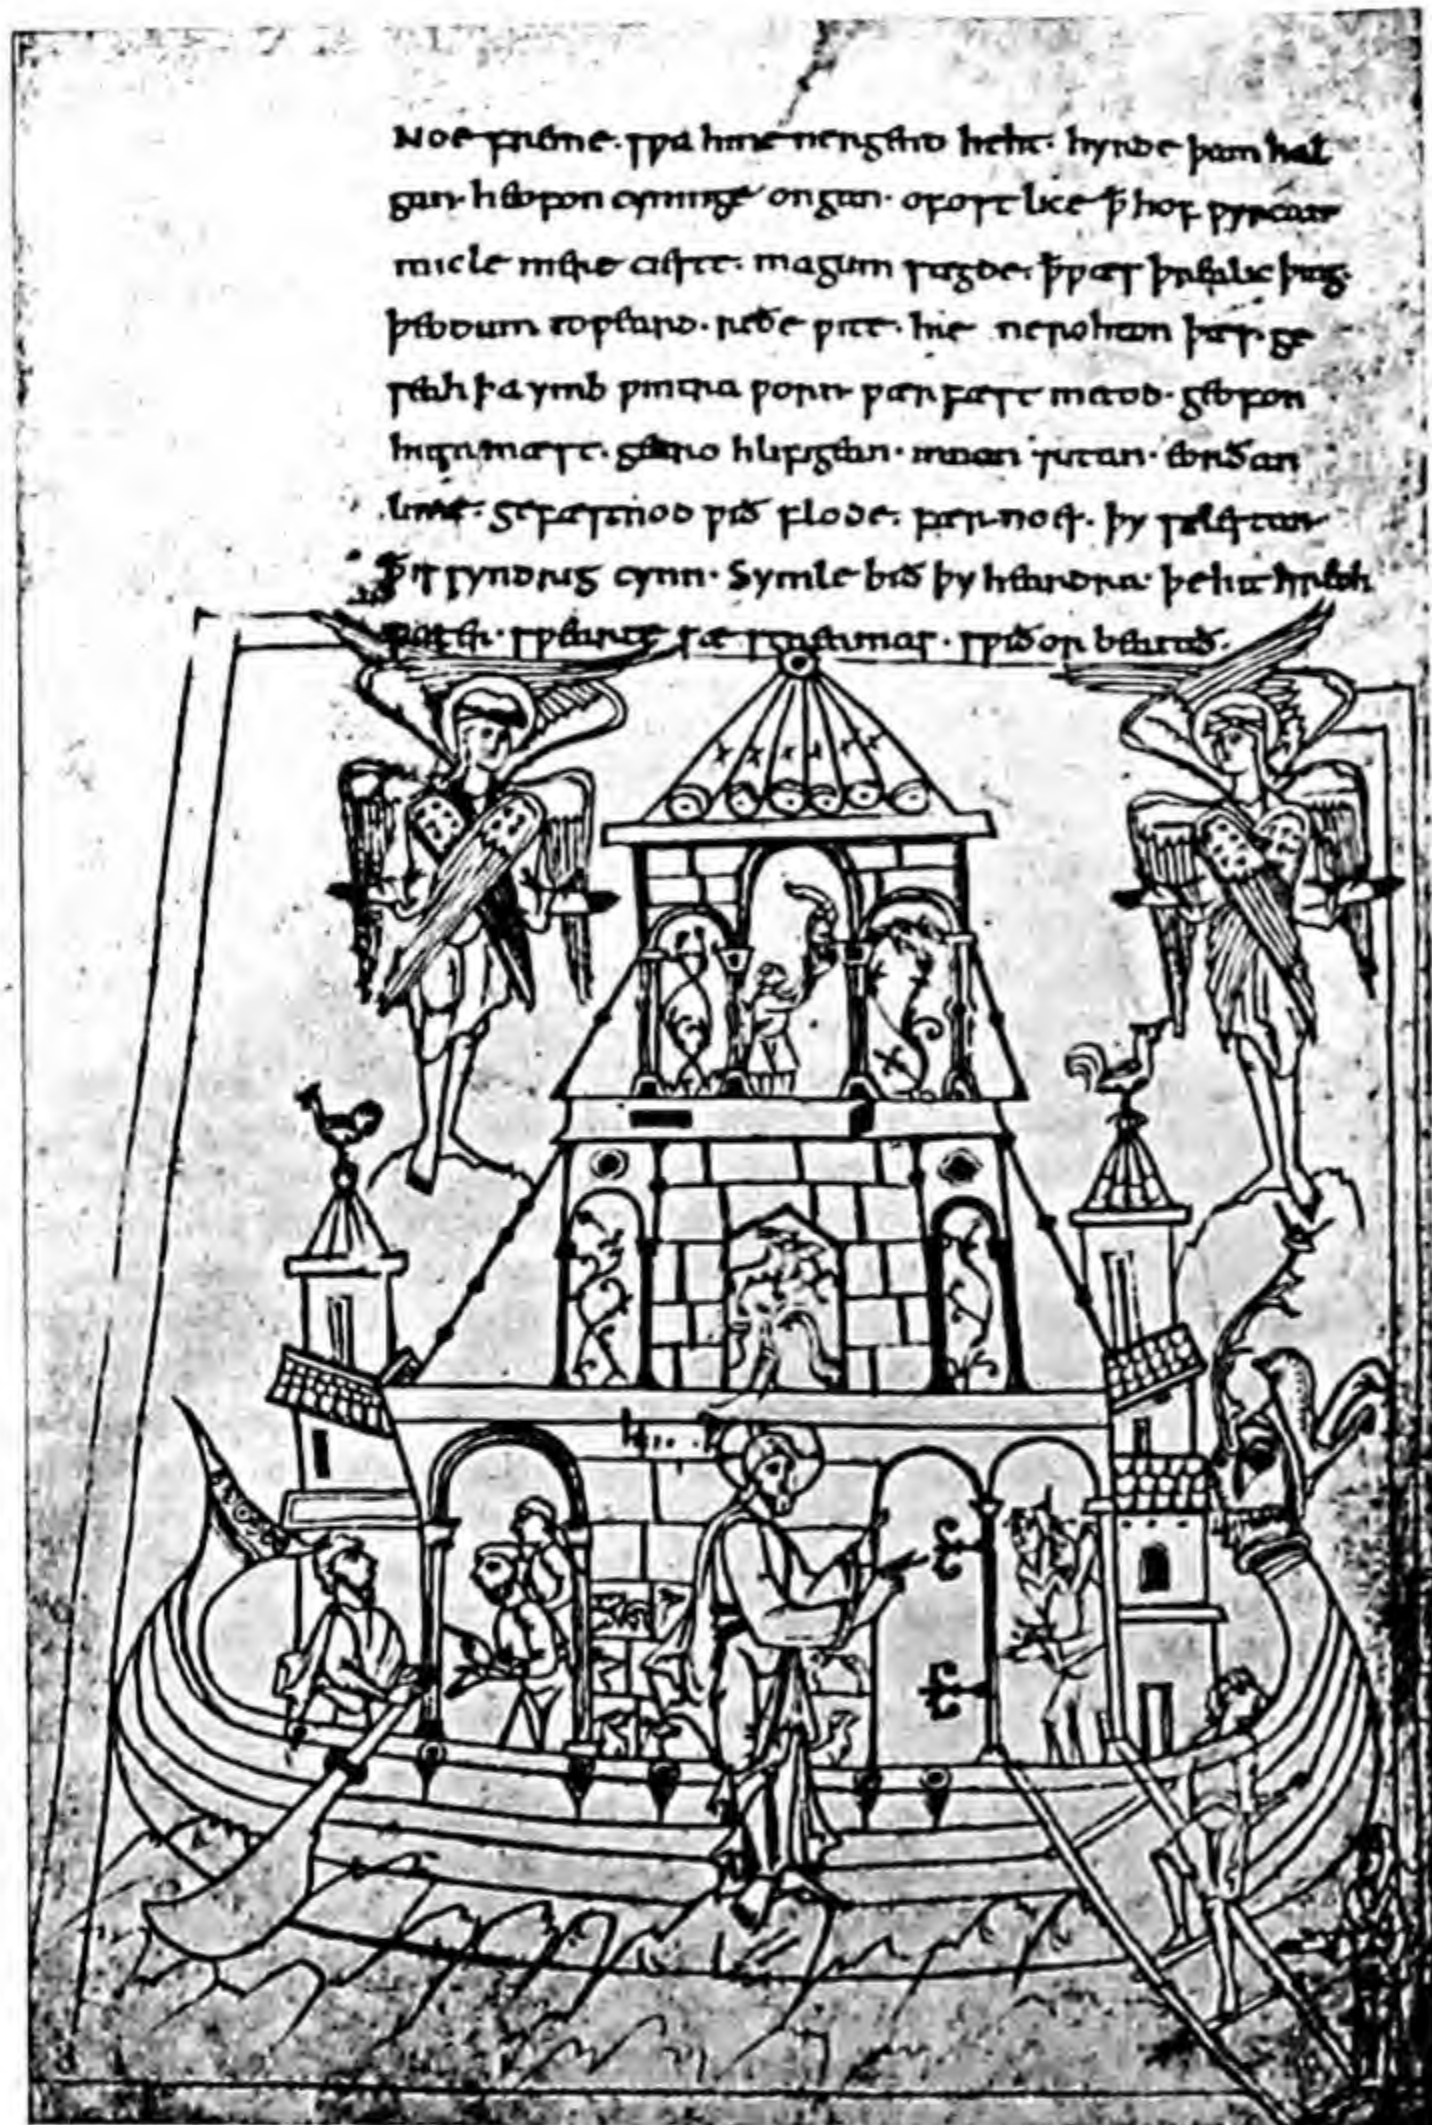 Noe freme. sƿa hine nergend heht. hyrde þam hal
gan heofon cyninge ongan. ofostlice ꝥ hof ƿyrcan
micle mere cieste. magum sægde. ꝥ ƿæs þrealic þing.
þeodum toƿeard. reðe ƿite. hie ne rohton þæs. ge
seah þa ymb ƿintra ƿorn ƿærfæst metod. geofon
husa mæst. gearo hlifigean. innan ⁊ utan. eorðan
lime. gefæstnod ƿið flode. fær noes. þy selestan
ꝥ is syndrig cynn. Symle bið þy heardra. þe hit hreoh
ƿæter. sƿearte sæ streamas. sƿiðor beatað.